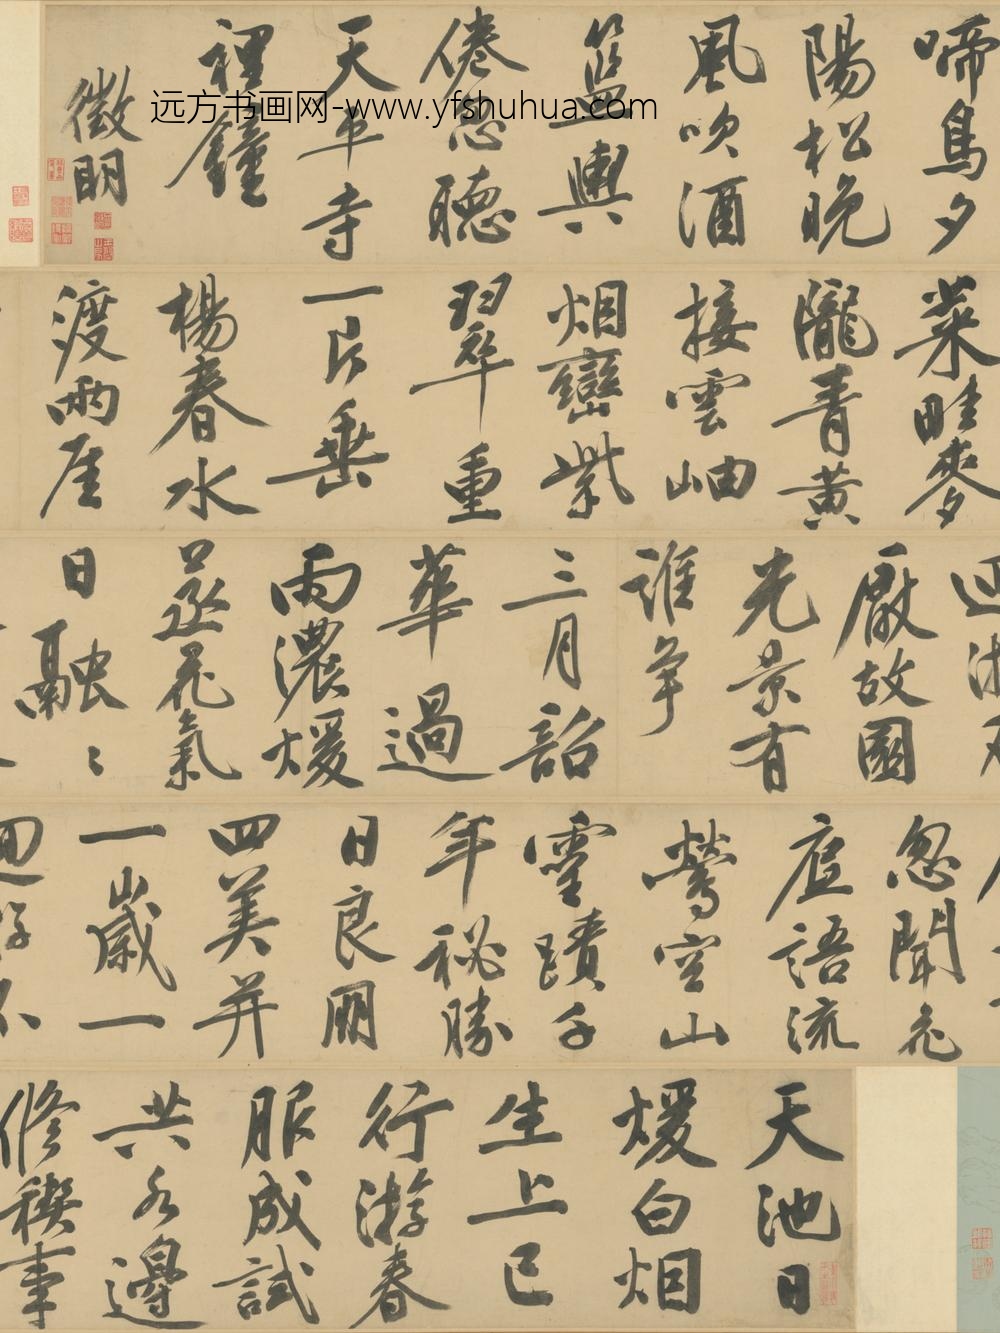 天池日
煖白烟
生上巳
行游春
服成試
共水邊
修禊事
忽聞花
底語流
鶯空山
靈蹟千
年秘勝
日良朋
四美并
一歲一
迴游不
厭故國
光景有
誰爭
三月韶
華過
雨濃煖
蒸花氣
日融融
菜畦麥
隴青黃
接雲岫
烟巒紫
翠重
一 垂
楊春水
渡兩厓
啼鳥夕
陽松晚
風吹酒
籃輿
倦忽聽
天平寺
裡鐘
徵明
远方书画网-www.yfshuhua.com